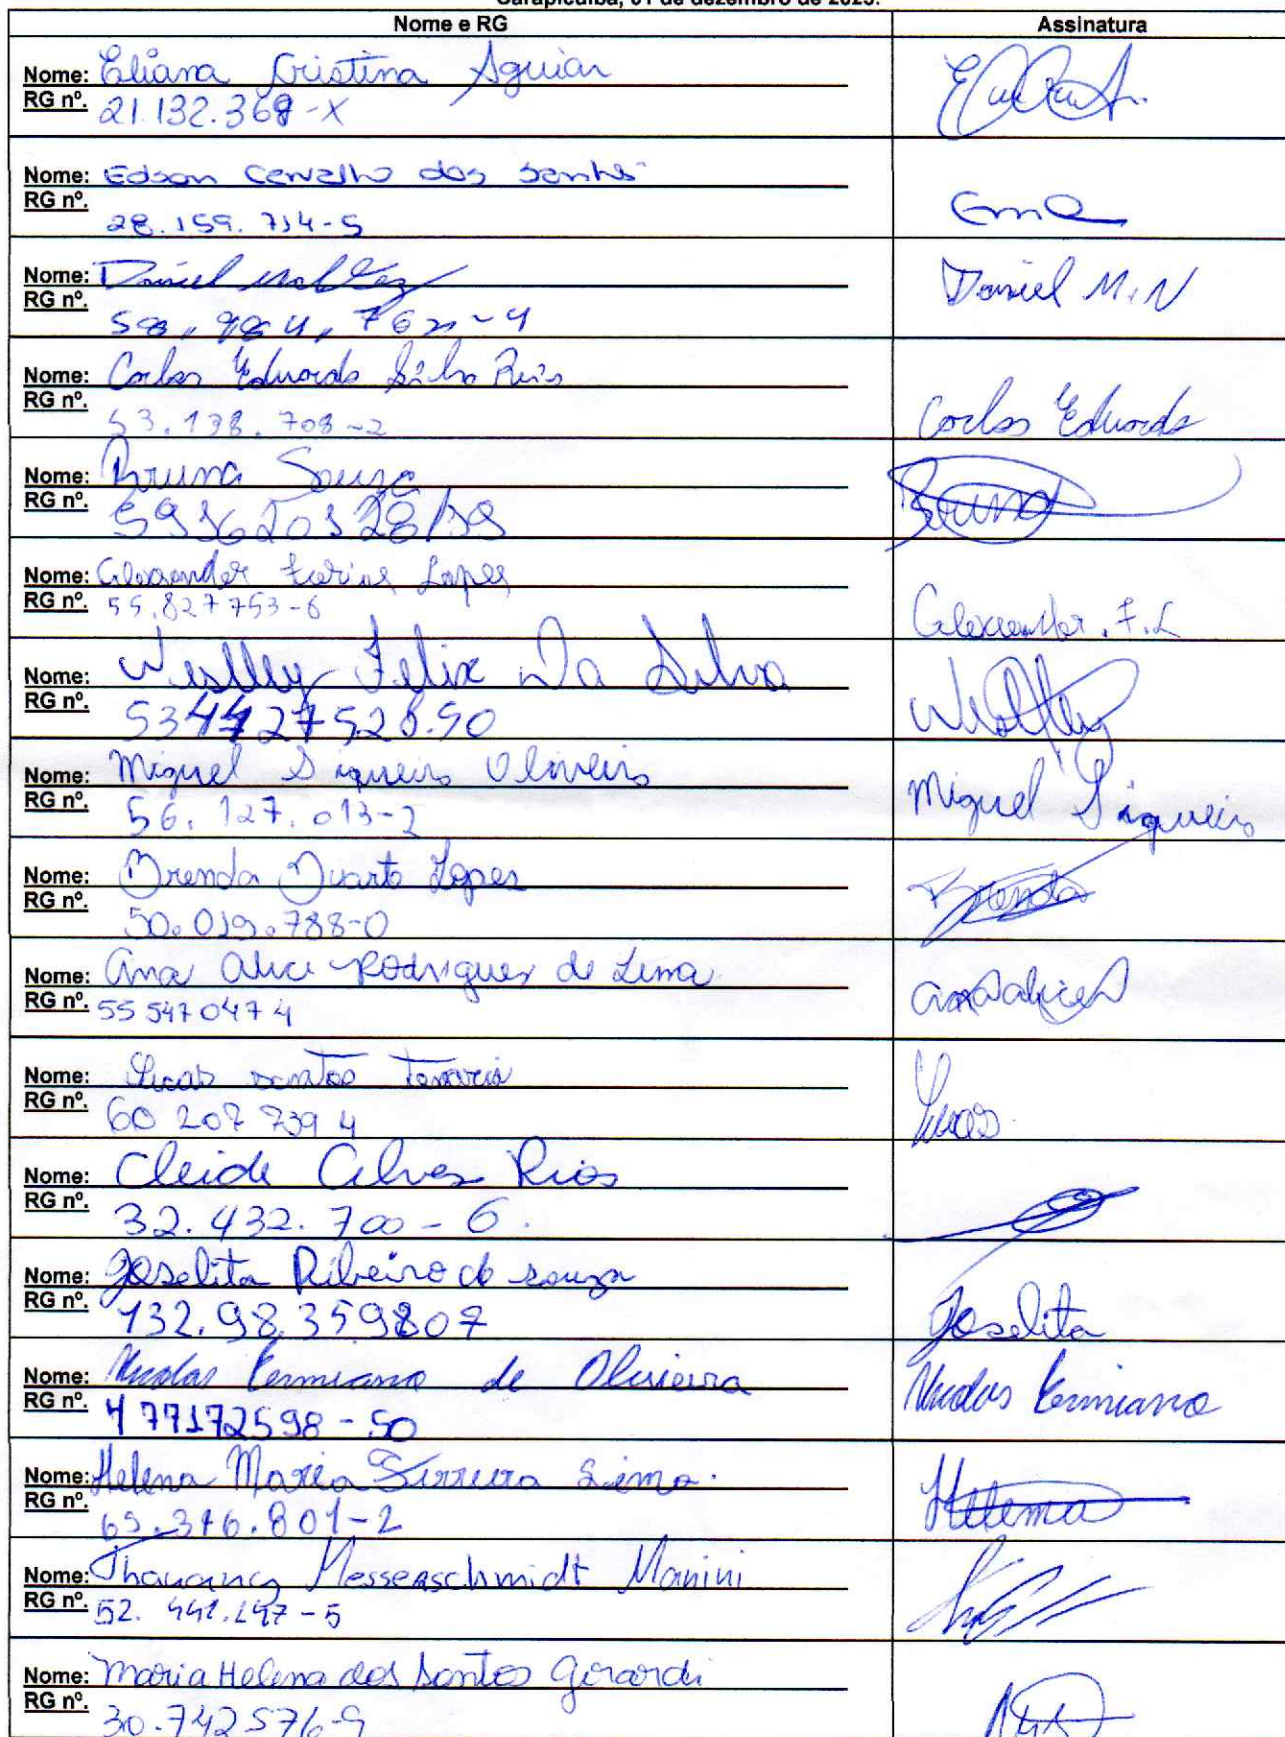 Carapicuíba, 01 de dezembro de 2023.
Nome e RG Assinatura
Nome: Eliana Cristina Aguiar
RG nº. 21.132.368-X
Nome: Edson Carvalho dos Santos
RG nº. 28.159.714-5
Nome: Daniel
RG nº.
Daniel M.N
Nome: Carlos Eduardo Silva Reis
RG nº. 53.138.708-2
Carlos Eduardo
Nome: Bruna Souza
RG nº.
Bruna
Nome: Alexander Farias Lopes
RG nº. 55.827753-6
Alexander. F.L
Nome: Weslley Felix Da Silva
RG nº. 534427528.90
Weslley
Nome: Miguel Siqueira Oliveira
RG nº. 56.127.013-2
Miguel Siqueira
Nome: Brenda Duarte Lopes
RG nº. 50.019.788-0
Brenda
Nome: Ana Alice Rodrigues de Lima
RG nº. 55 547 047 4
Ana alice
Nome: Lucas santos
RG nº. 60 207 739 4
Lucas
Nome: Cleide Alves Rios
RG nº. 32.432.700-6.
Nome: Joselita Ribeiro de souza
RG nº. 132.98.359807
Joselita
Nome: de Oliveira
RG nº. 477172598-50
Nome: Helena Maria Ferreira Lima.
RG nº. 65.376.801-2
Helena
Nome: Messerschmidt Manini
RG nº. 52.441.247-5
Nome: Maria Helena dos Santos Girardi
RG nº. 30.742576-9